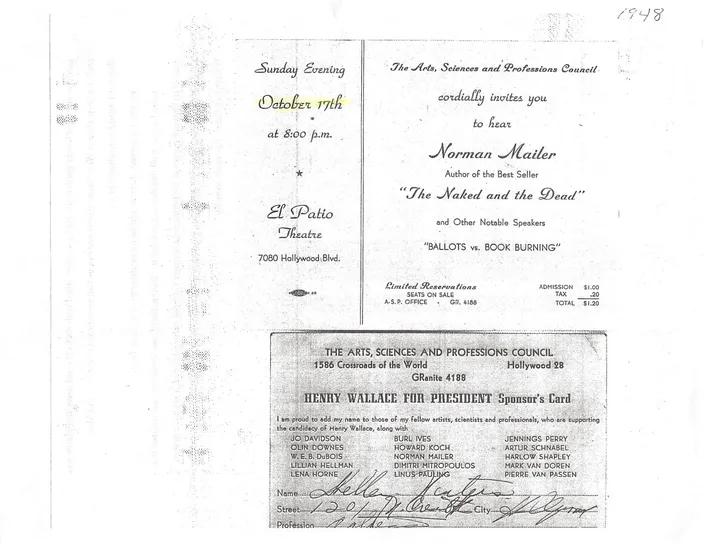 1948
Sunday Evening
October 17th
at 8:00 p.m.
El Patio
Theatre
7080 Hollywood Blvd.
The Arts, Sciences and Professions Council
cordially invites you
to hear
Norman Mailer
Author of the Best Seller
"The Naked and the Dead"
and Other Notable Speakers
"BALLOTS vs. BOOK BURNING"
Limited Reservations
SEATS ON SALE
A.S.P. OFFICE - GR. 4188
ADMISSION $1.00
TAX .20
TOTAL $1.20
THE ARTS, SCIENCES AND PROFESSIONS COUNCIL
1586 Crossroads of the World Hollywood 28
GRanite 4188
HENRY WALLACE FOR PRESIDENT Sponsor's Card
I am proud to add my name to those of my fellow artists, scientists and professionals, who are supporting
the candidacy of Henry Wallace, along with
JO DAVIDSON BURL IVES JENNINGS PERRY
OLIN DOWNES HOWARD KOCH ARTUR SCHNABEL
W. E. B. DuBOIS NORMAN MAILER HARLOW SHAPLEY
LILLIAN HELLMAN DIMITRI MITROPOULOS MARK VAN DOREN
LENA HORNE LINUS PAULING PIERRE VAN PASSEN
Name Shelley Winters
Street City
Profession